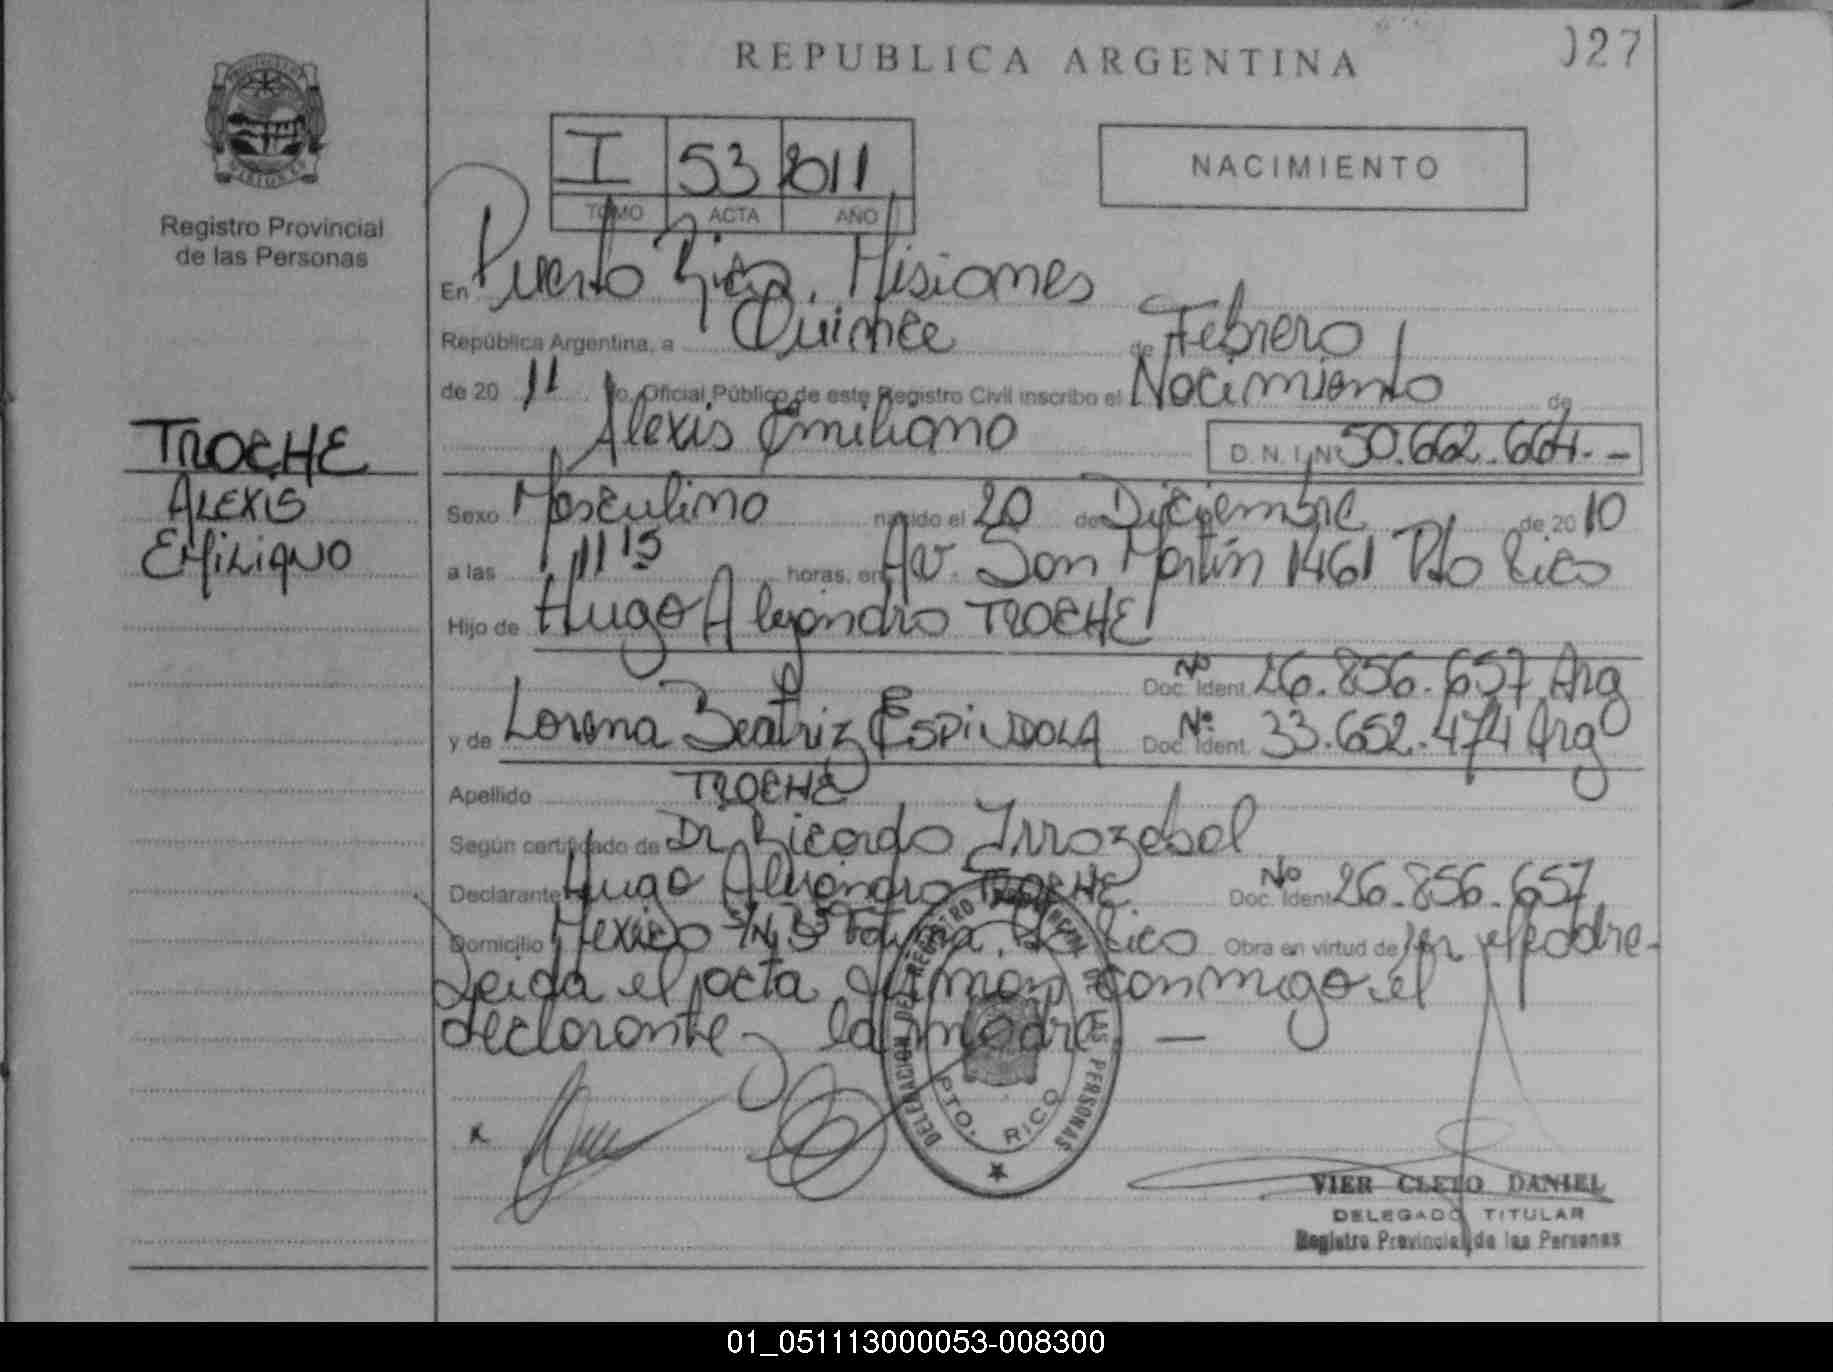 REPUBLICA ARGENTINA
027
PROVINCIA DE MISIONES
Registro Provincial
de las Personas
I 53 2011
TOMO ACTA AÑO
NACIMIENTO
En Puerto Rico, Misiones
República Argentina, a Quince de Febrero
de 20 11 Yo, Oficial Público de este Registro Civil inscribo el Nacimiento de
Alexis Emiliano
D. N. I. Nº 50.662.664.-
TROCHE
ALEXIS
EMILIANO
Sexo Masculino nacido el 20 de Diciembre de 20 10
a las 11 15 horas, en Av. San Martín 1461 Pto Rico
Hijo de Hugo Alejandro TROCHE
Doc. Ident. Nº 26.856.657 Arg
y de Lorena Beatriz ESPINDOLA Doc. Ident. Nº 33.652.474 Arg
Apellido TROCHE
Según certificado de Dr. Ricardo Irrazabal
Declarante Hugo Alejandro TROCHE Doc. Ident Nº 26.856.657
Domicilio Mexico S/N Bº Rico Obra en virtud de ser el padre-
Leida el acta firman conmigo el
declarante y la madre —
DELEGACION DEL REGISTRO PROVINCIAL DE LAS PERSONAS
PTO. RICO
x
VIER CLETO DANIEL
DELEGADO TITULAR
Registro Provincial de las Personas
01_051113000053-008300